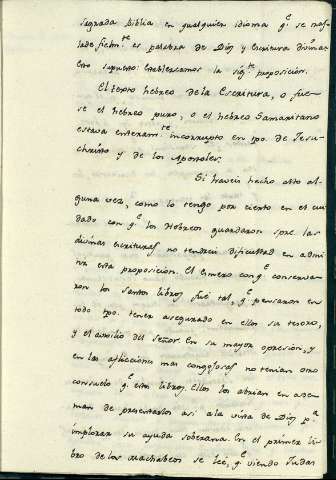 sagrada Biblia en qualquier idioma q.e se nos
lade, fielm.te es palabra de Dios y Escritura divina
Esto supuesto: Establezcamos la sig.te proposicion.
El texto hebreo de la Escritura, o fue-
se el Hebreo puro, o el hebreo Samaritano
estava enteram.te incorrupto en tpo. de Jesu-
christo y de los Apostoles.
Si haveis hecho alto al-
guna vez, como lo tengo por cierto en el cui
dado con q.e los Hebreos guardaron spre las
divinas escrituras no tendreis dificultad en admi
tir esta proposicion. El esmero con q.e conserva-
ron los santos libros fue tal, q.e pensaron en
todo tpo. tener asegurado en ellos su tesoro,
y el auxilio del Señor. En su mayor opresion, y
en las aflicciones mas congojosas no tenian otro
consuelo q.e estos libros. Ellos los abrian en ade-
man de presentarlos asi a la vista de Dios p.a
implorar su ayuda soberana. En el primer li
bro de los Machabeos se leé, q.e viendo Judas